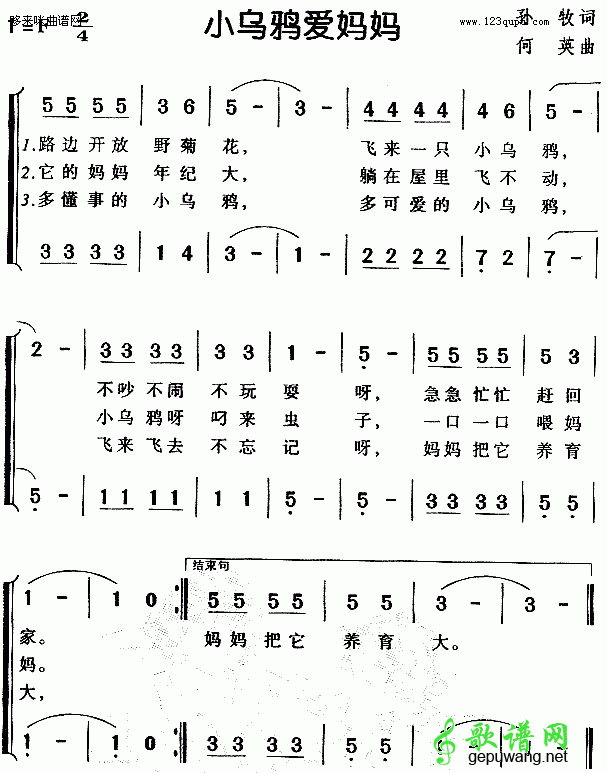 哆来咪曲谱网
小乌鸦爱妈妈
孙 牧词
何 英曲
1=F 2/4
5 5 5 5 | 3 6 | 5 - | 3 - | 4 4 4 4 | 4 6 | 5 - |
1.路边开放 野菊花， 飞来一只 小乌鸦，
2.它的妈妈 年纪大， 躺在屋里 飞不动，
3.多懂事的 小乌鸦， 多可爱的 小乌鸦，
3 3 3 3 | 1 4 | 3 - | 1 - | 2 2 2 2 | 7 2 | 7 - |
2 - | 3 3 3 3 | 3 3 | 1 - | 5 - | 5 5 5 5 | 5 3 |
不吵不闹 不玩耍 呀， 急急忙忙 赶回
小乌鸦呀 叼来虫子， 一口一口 喂妈
飞来飞去 不忘记呀， 妈妈把它 养育
5 - | 1 1 1 1 | 1 1 | 5 - | 5 - | 3 3 3 3 | 5 5 |
结束句
1 - | 1 0 :| 5 5 5 5 | 5 5 | 3 - | 3 - |
家。 妈妈把它 养育大。
妈。
大，
1 - | 1 0 :| 5 5 5 5 | 5 5 |
歌谱网
gepuwang.net